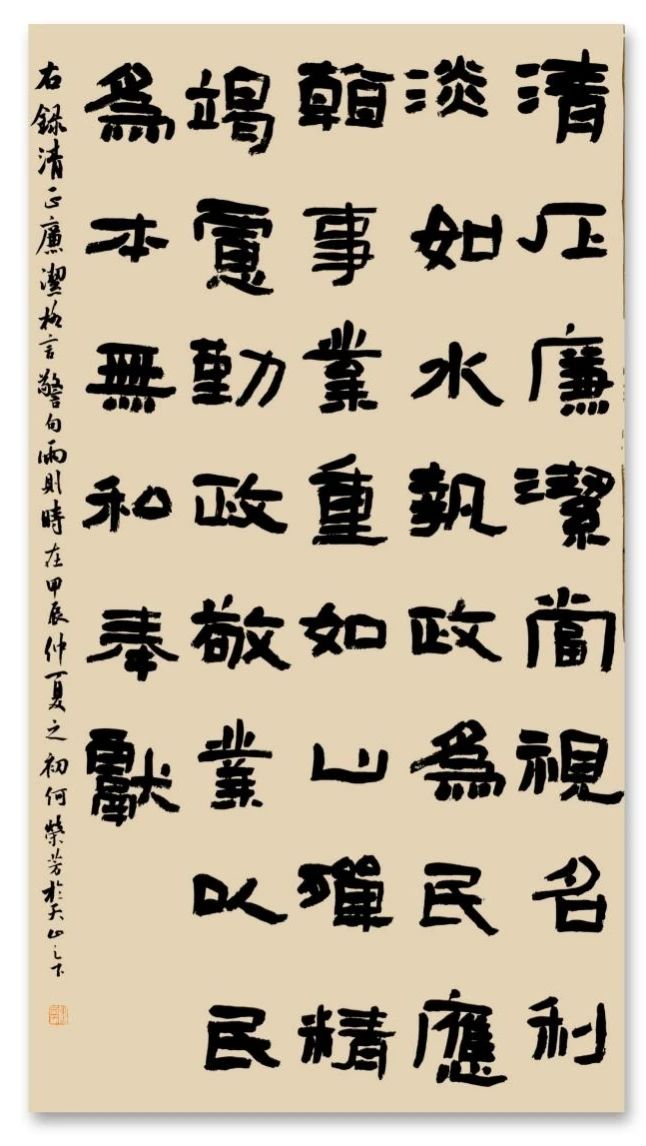 清正廉潔當視名利
淡如水執政為民應
看事業重如山殫精
竭慮勤政敬業以民
為本無私奉獻
右錄清正廉潔格言警句兩則時在甲辰仲夏之初何榮芳於天山之下